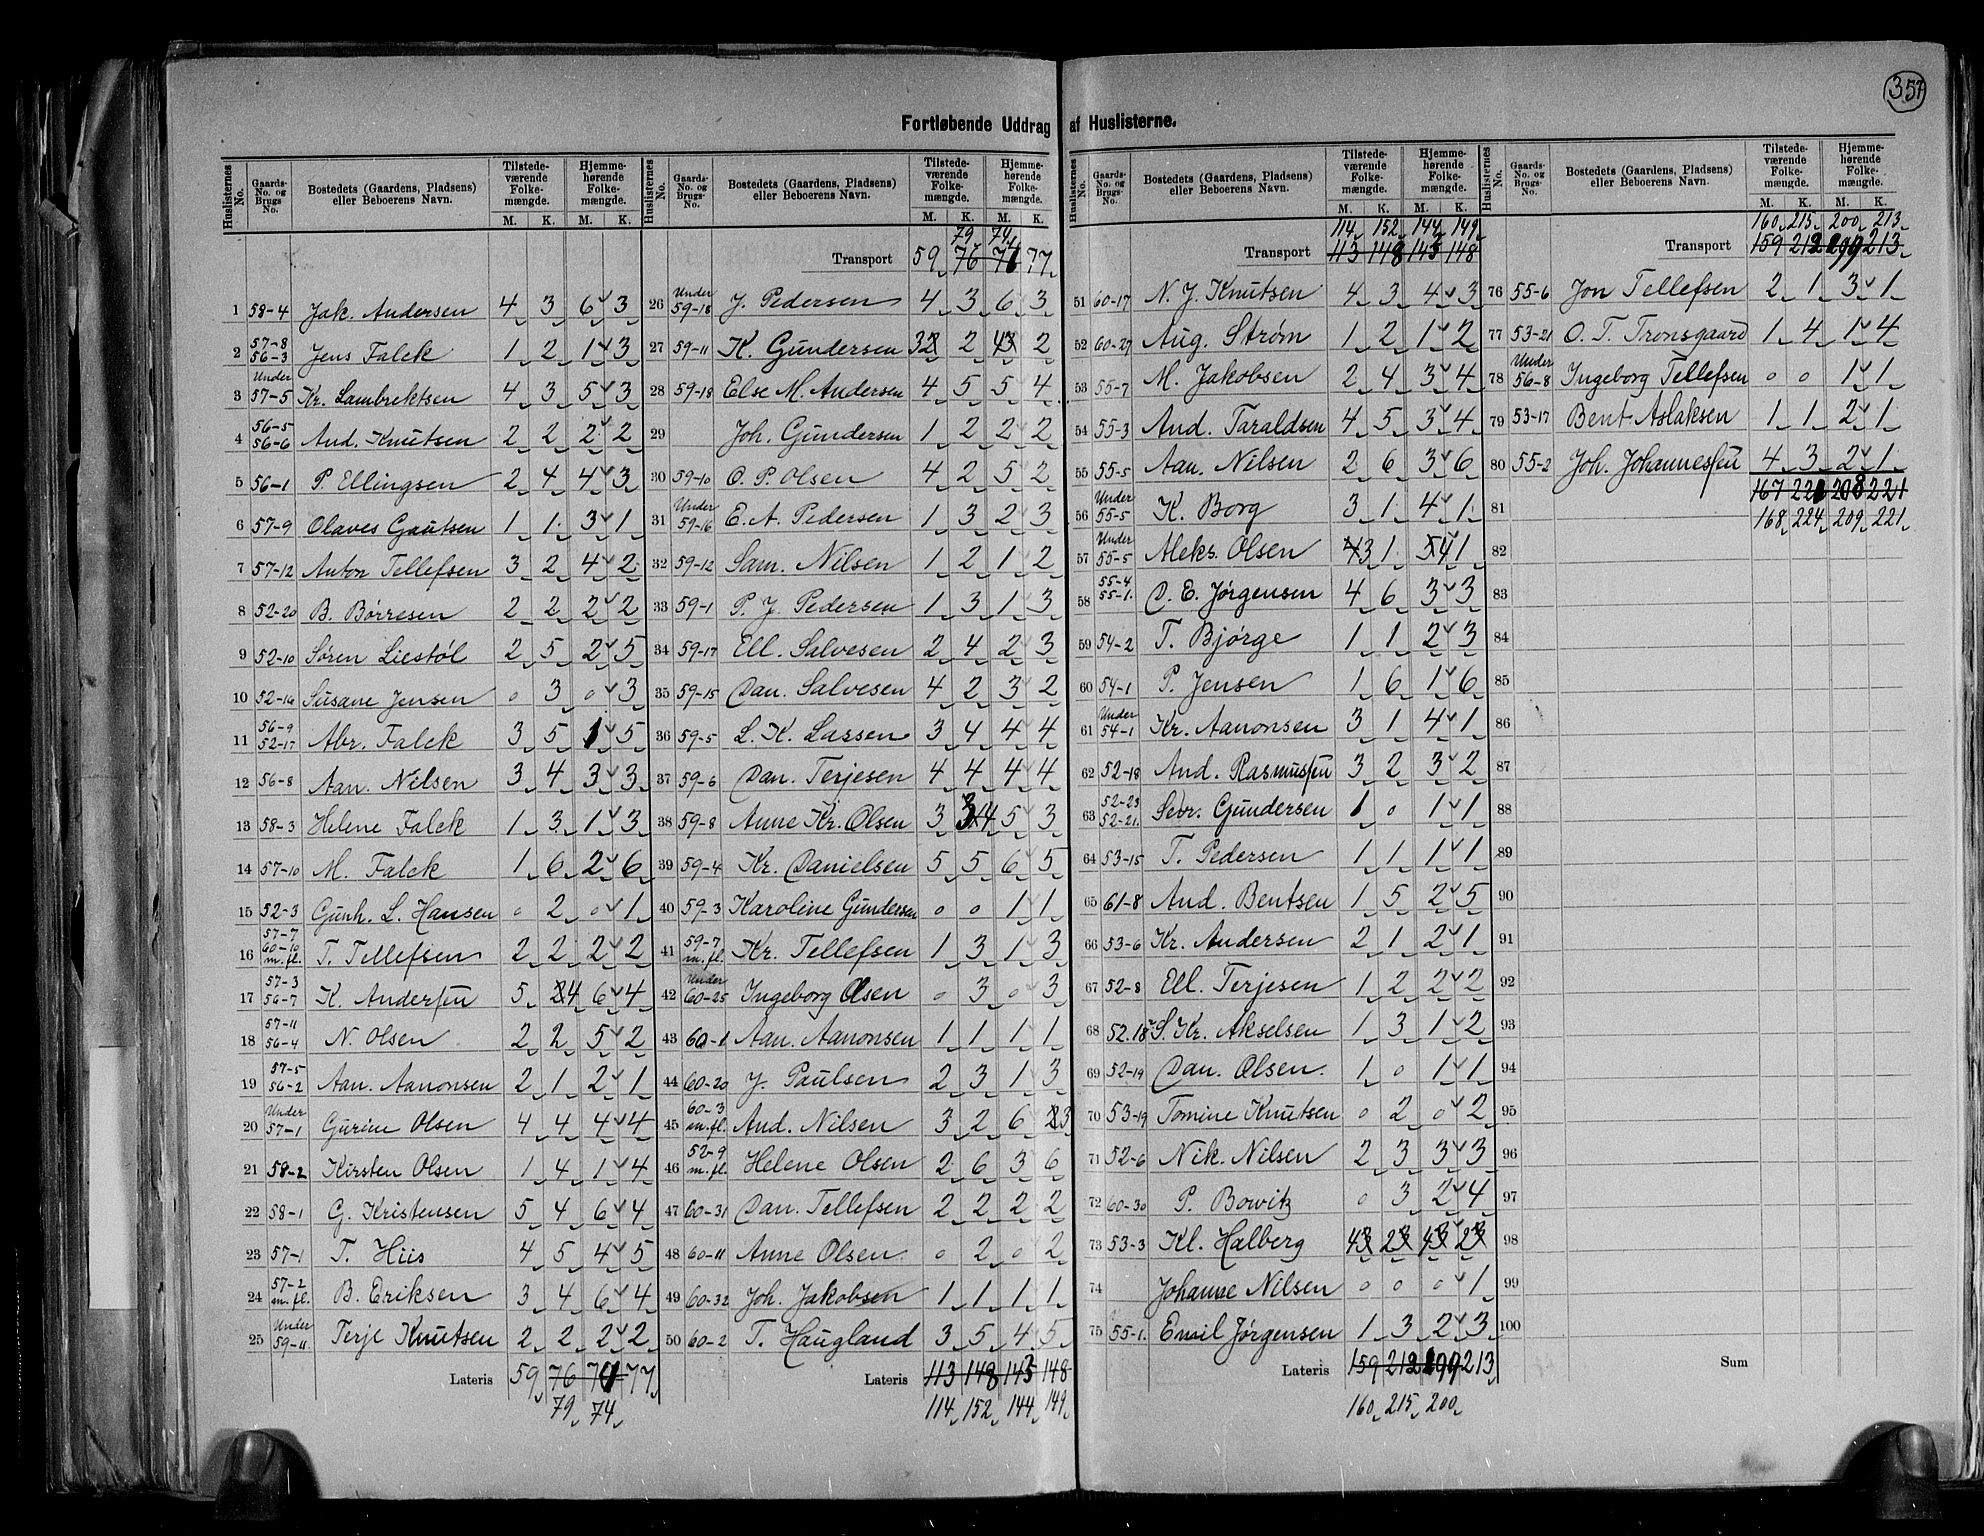 357
Fortløbende Uddrag af Huslisterne.
Huslisternes No. | Gaards-No. og Brugs-No. | Bostedets (Gaardens, Pladsens) eller Beboerens Navn. | Tilstedeværende Folkemængde. M. K. | Hjemmehørende Folkemængde. M. K.
1 58-4 Jak. Andersen 4 3 6 3
2 57-8 56-3 Jens Falck 1 2 1 3
3 Under 57-5 Kr. Lambrektsen 4 3 5 3
4 56-5 56-6 And. Knutsen 2 2 2 2
5 56-1 P. Ellingsen 2 4 4 3
6 57-9 Olaves Gautsen 1 1 3 1
7 57-12 Anton Tellefsen 3 2 4 2
8 52-20 B. Børresen 2 2 2 2
9 52-10 Søren Liestøl 2 5 2 5
10 52-16 Susane Jensen 0 3 0 3
11 56-9 52-17 Abr. Falck 3 5 1 5
12 56-8 Aan. Nilsen 3 4 3 3
13 58-3 Helene Falck 1 3 1 3
14 57-10 M. Falck 1 6 2 6
15 52-3 Gunh. L. Hansen 0 2 0 1
16 57-7 60-10 m.fl. T. Tellefsen 2 2 2 2
17 57-3 56-7 K. Andersen 5 4 6 4
18 57-11 56-4 N. Olsen 2 2 5 2
19 57-5 56-2 Aan. Aanonsen 2 1 2 1
20 Under 57-1 Gurine Olsen 4 4 4 4
21 58-2 Kirsten Olsen 1 4 1 4
22 58-1 G. Kristensen 5 4 6 4
23 57-1 T. Hiis 4 5 4 5
24 57-2 m.fl. B. Eriksen 3 4 6 4
25 Under 59-11 Terje Knutsen 2 2 2 2
Lateris 59 76 77
79 74
Huslisternes No. | Gaards-No. og Brugs-No. | Bostedets (Gaardens, Pladsens) eller Beboerens Navn. | Tilstedeværende Folkemængde. M. K. | Hjemmehørende Folkemængde. M. K.
79 74
Transport 59 76 77
26 Under 59-18 J. Pedersen 4 3 6 3
27 59-11 K. Gundersen 3 2 2 4 3 2
28 59-18 Else M. Andersen 4 5 5 4
29 Joh. Gundersen 1 2 2 2
30 59-10 O. P. Olsen 4 2 5 2
31 Under 59-16 E. A. Pedersen 1 3 2 3
32 59-12 Sam. Nilsen 1 2 1 2
33 59-1 P. J. Pedersen 1 3 1 3
34 59-17 Ell. Salvesen 2 4 2 3
35 59-15 Dan. Salvesen 4 2 3 2
36 59-5 L. K. Lassen 3 4 4 4
37 59-6 Dan. Terjesen 4 4 4 4
38 59-8 Anne Kr. Olsen 3 4 5 3
39 59-4 Kr. Danielsen 5 5 6 5
40 59-3 Karoline Gundersen 0 0 1 1
41 59-7 m.fl. Kr. Tellefsen 1 3 1 3
42 Under 60-25 Ingeborg Olsen 0 3 0 3
43 60-1 Aan. Aanonsen 1 1 1 1
44 60-20 J. Paulsen 2 3 1 3
45 60-3 m.fl. And. Nilsen 3 2 6 2 3
46 52-9 m.fl. Helene Olsen 2 6 3 6
47 60-31 Dan. Tellefsen 2 2 2 2
48 60-11 Anne Olsen 0 2 0 2
49 60-32 Joh. Jakobsen 1 1 1 1
50 60-2 T. Haugland 3 5 4 5
Lateris 113 148 143 148
114 152 144 149
Huslisternes No. | Gaards-No. og Brugs-No. | Bostedets (Gaardens, Pladsens) eller Beboerens Navn. | Tilstedeværende Folkemængde. M. K. | Hjemmehørende Folkemængde. M. K.
114 152 144 149
Transport 113 148 143 148
51 60-17 N. J. Knutsen 4 3 4 3
52 60-27 Aug. Strøm 1 2 1 2
53 55-7 M. Jakobsen 2 4 3 4
54 55-3 And. Taraldsen 4 5 3 4
55 55-5 Aan. Nilsen 2 6 3 6
56 Under 55-5 K. Borg 3 1 4 1
57 Under 55-5 Aleks. Olsen 4 3 1 5 4 1
58 55-4 55-1. O. E. Jørgensen 4 6 3 3
59 54-2 T. Bjørge 1 1 2 3
60 54-1 P. Jensen 1 6 1 6
61 Under 54-1 Kr. Aanonsen 3 1 4 1
62 52-18 And. Rasmussen 3 2 3 2
63 52-23 52-21. Sevr. Gundersen 1 0 1 1
64 53-15 T. Pedersen 1 1 1 1
65 61-8 And. Bentsen 1 5 2 5
66 53-6 Kr. Andersen 2 1 2 1
67 52-8 Ell. Terjesen 1 2 2 2
68 52.18 S. Kr. Akselsen 1 3 1 2
69 52-19 Dan. Olsen. 1 0 1 1
70 53-19 Tomine Knutsen 0 2 0 2
71 52-6 Nik. Nilsen 2 3 3 3
72 60-30 P. Bowitz 0 3 2 4
73 53-3 Kl. Halberg 4 3 2 3 4 3 2 3
74 Johanne Nilsen 0 0 0 1
75 55-1. Emil Jørgensen 1 3 2 3
Lateris 159 212 199 213
160 215 200
Huslisternes No. | Gaards-No. og Brugs-No. | Bostedets (Gaardens, Pladsens) eller Beboerens Navn. | Tilstedeværende Folkemængde. M. K. | Hjemmehørende Folkemængde. M. K.
160 215 200 213
Transport 159 212 199 213
76 55-6 Jon Tellefsen 2 1 3 1
77 53-21 O. T. Tronsgaard 1 4 1 4
78 Under 56-8 Ingeborg Tellefsen 0 0 1 1
79 53-17 Bent Aslaksen 1 1 2 1
80 55-2 Joh. Johannessen 4 3 2 1
167 221 208 221
81 168 224 209 221
82
83
84
85
86
87
88
89
90
91
92
93
94
95
96
97
98
99
100
Sum